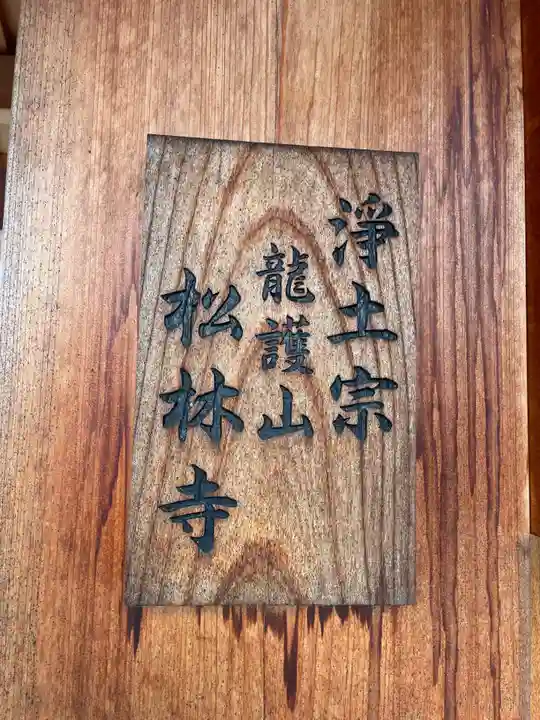 浄土宗
龍護山
松林寺